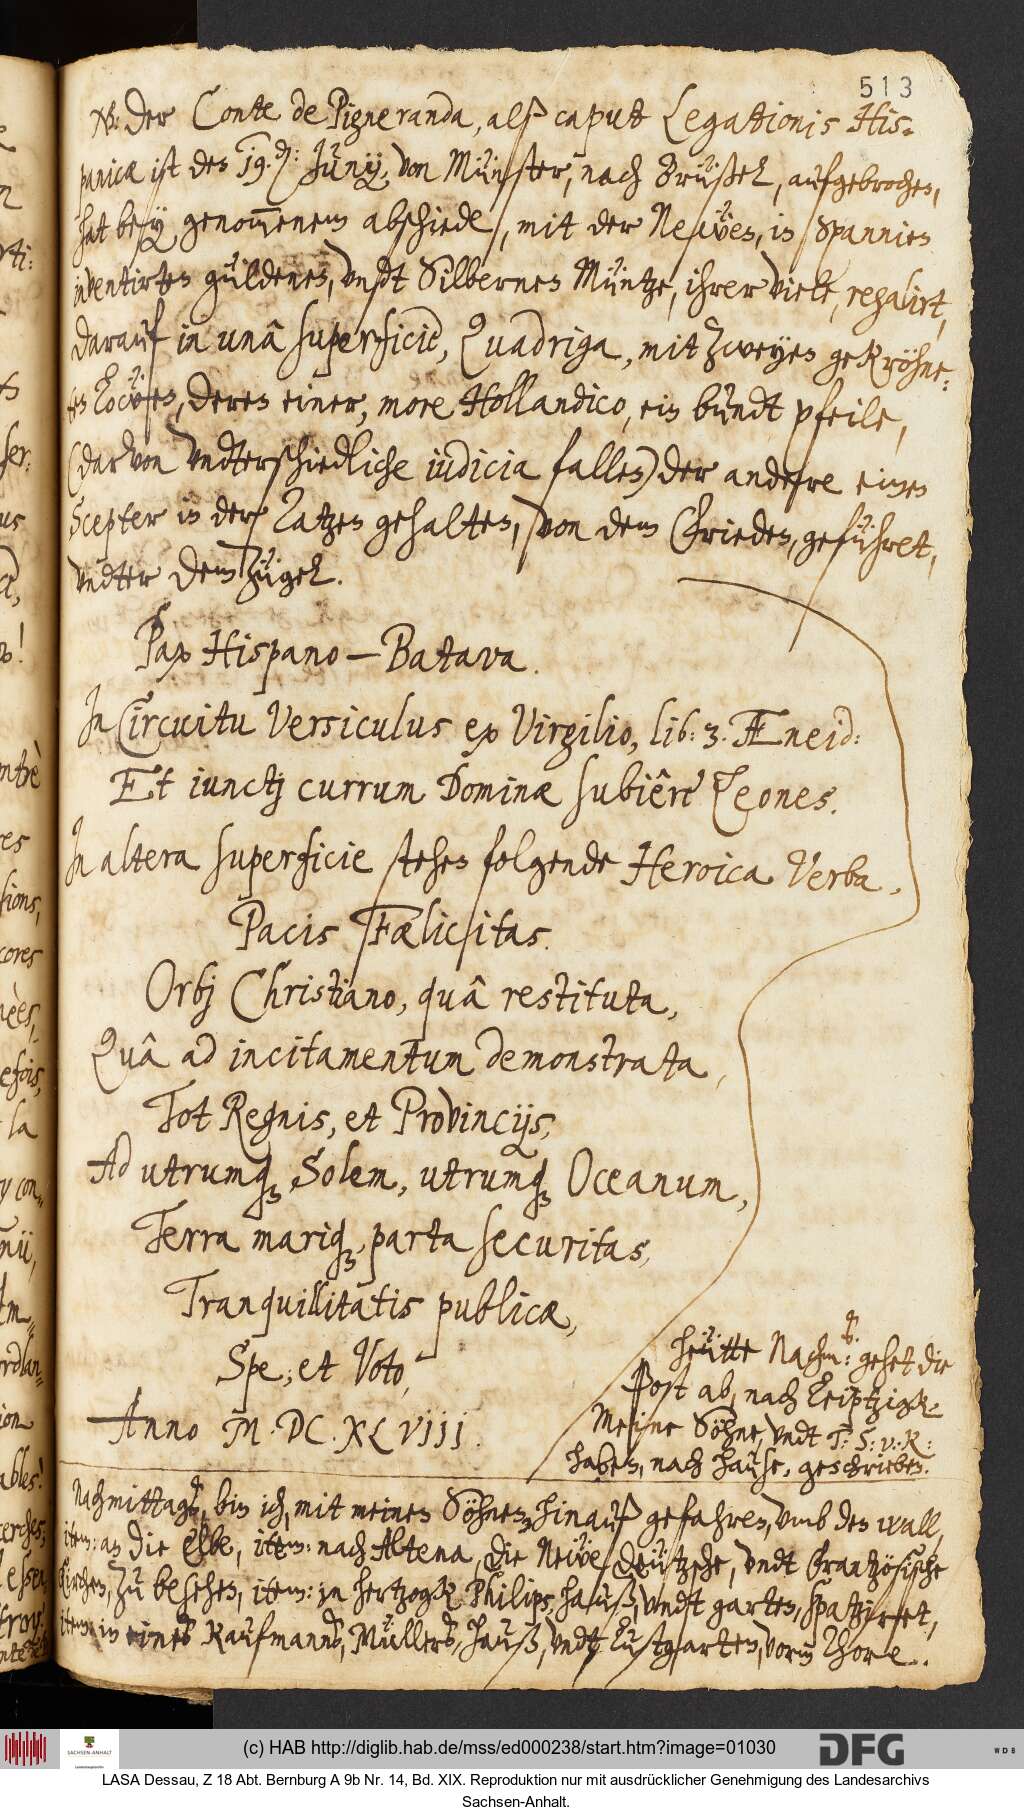 513
NB: Der Conte de Pigneranda, alß caput Legationis His-
panicæ ist des 19. d: Junij, von Münster, nach Brüßel, aufgebrochen,
hat bey genom̅enem abschiede, mit der Newen, in Spannien
inventirten güldenen, undt Silbernen Müntze, ihrer viele, regalirt,
darauf in unâ superficie, Quadriga, mit zweyen gekröhne-
ten Löwen, deren einer, more Hollandico, ein bundt pfeile,
(darvon undterschiedliche iudicia fallen) der andere einen
Scepter in der Tatzen gehalten, von dem Frieden, geführet,
undter dem Zügel.
Pax Hispano-Batava.
In Circuitu Versiculus ex Virgilio, lib: 3. Æneid:
Et iunctj currum Dominæ subiêre Leones.
In altera superficie stehen folgende Heroica Verba,
Pacis Fælicitas.
Orbj Christiano, quâ restituta,
Quâ ad incitamentum demonstrata,
Tot Regnis, et Provincijs,
Ad utrumq3 Solem, utrumq3 Oceanum,
Terra mariq3, parta securitas,
Tranquillitatis publicæ,
Spe, et Voto,
Anno M.DC.XLVIII.
heütte Nachm: gehet die
Post ab, nach Leiptzigk
Meine Söhne, undt T: S: v: K:
haben, nach hause, geschrieben.
Nachmittags, bin ich, mit meinen Söhnen, hinauß gefahren, umb den wall,
item: an die Elbe, item: nach Altena, die Neüe Deützsche, undt Frantzösische
Kirchen, zu besehen, item: in hertzogk Philips, hauß, undt garten, spatziret,
item: in eines Kaufmanns, Müllers, hauß, undt Lustgarten, vorm Thore.
(c) HAB http://diglib.hab.de/mss/ed000238/start.htm?image=01030
SACHSEN-ANHALT
DFG
WDB
LASA Dessau, Z 18 Abt. Bernburg A 9b Nr. 14, Bd. XIX. Reproduktion nur mit ausdrücklicher Genehmigung des Landesarchivs
Sachsen-Anhalt.